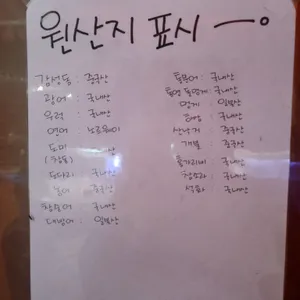 원산지 표시
감성돔 : 중국산
광어 : 국내산
우럭 : 국내산
연어 : 노르웨이
도미 : 
(참돔)
도다리 : 국내산
농어 : 중국산
참숭어 : 국내산
대방어 : 일본산
돌문어 : 국내산
통영 돌멍게 : 국내산
멍게 : 일본산
해삼 : 국내산
산낙지 : 중국산
개불 : 중국산
홍가리비 : 국내산
참소라 : 국내산
석화 : 국내산